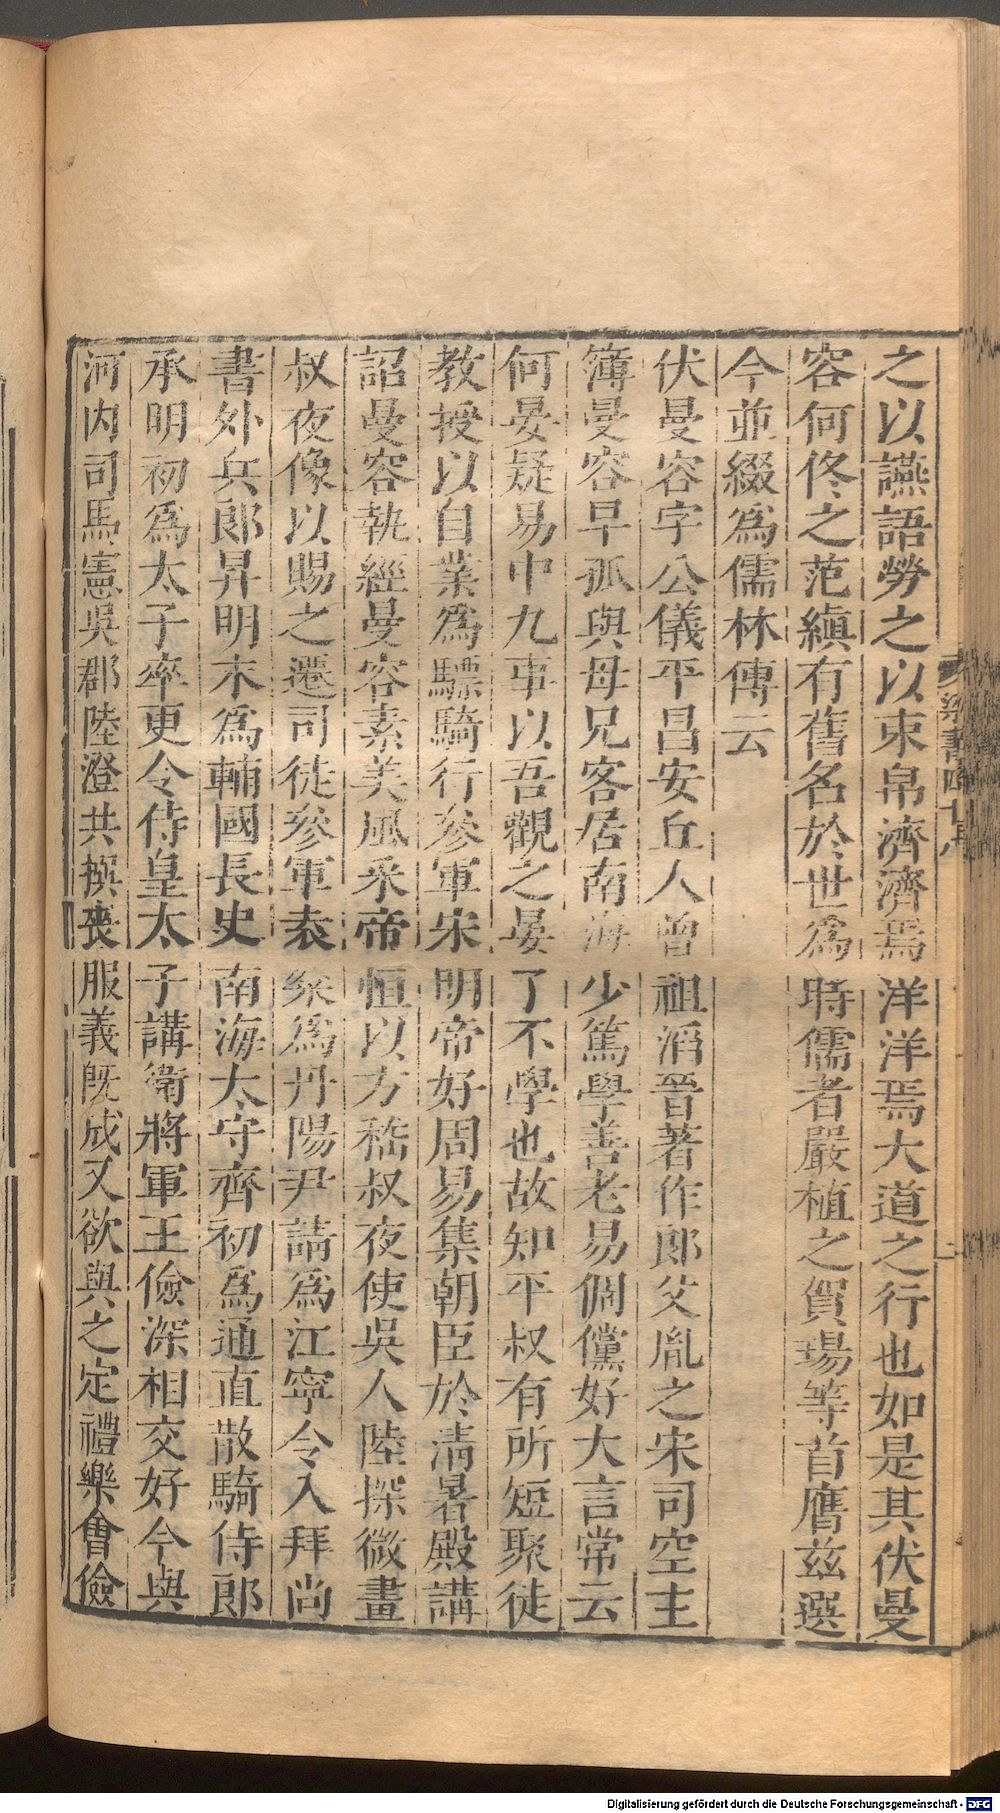 之以讌語勞之以束帛濟濟焉洋洋焉大道之行也如是其伏曼
容何佟之范縝有舊名於世爲時儒者嚴植之賀瑒等首膺兹選
今並綴爲儒林傳云
伏曼容字公儀平昌安丘人曾祖滔晉著作郎父胤之宋司空主
簿曼容早孤與母兄客居南海少篤學善老易倜儻好大言常云
何晏疑易中九事以吾觀之晏了不學也故知平叔有所短聚徒
教授以自業爲驃騎行參軍宋明帝好周易集朝臣於淸暑殿講
詔曼容執經曼容素美風采帝恒以方嵇叔夜使吳人陸探微畫
叔夜像以賜之遷司徒參軍袁粲爲丹陽尹請爲江寧令入拜尚
書外兵郎昇明末爲輔國長史南海太守齊初爲通直散騎侍郎
承明初爲太子率更令侍皇太子講衛將軍王儉深相交好令與
河内司馬憲吳郡陸澄共撰喪服義旣成又欲與之定禮樂會儉
梁書四十八
Digitalisierung gefördert durch die Deutsche Forschungsgemeinschaft - DFG